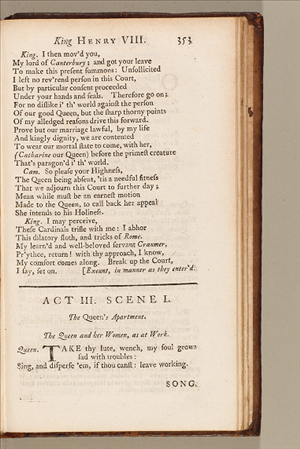 King HENRY VIII. 353
King. I then mov'd you,
My lord of Canterbury; and got your leave
To make this present summons: Unsollicited
I left no rev'rend person in this Court,
But by particular consent proceeded
Under your hands and seals. Therefore go on;
For no dislike i' th' world against the person
Of our good Queen, but the sharp thorny points
Of my alledged reasons drive this forward.
Prove but our marriage lawful, by my life
And kingly dignity, we are contented
To wear our mortal state to come, with her,
(Catharine our Queen) before the primest creature
That's paragon'd i' th' world.
Cam. So please your Highness,
The Queen being absent, 'tis a needful fitness
That we adjourn this Court to further day;
Mean while must be an earnest motion
Made to the Queen, to call back her appeal
She intends to his Holiness.
King. I may perceive,
These Cardinals trifle with me: I abhor
This dilatory sloth, and tricks of Rome.
My learn'd and well-beloved servant Cranmer,
Pr'ythee, return! with thy approach, I know,
My comfort comes along. Break up the Court,
I say, set on. [Exeunt, in manner as they enter'd.
ACT III. SCENE I.
The Queen's Apartment.
The Queen and her Women, as at Work.
Queen. TAKE thy lute, wench, my soul grows
sad with troubles:
Sing, and disperse 'em, if thou canst: leave working.
SONG.